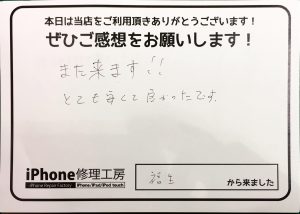 本日は当店をご利用頂きありがとうございます！
ぜひご感想をお願いします！
また来ます！！
とても安くて良かったです。
iPhone修理工房
iPhone Repair Factory iPhone/iPad/iPod touch
福生 から来ました